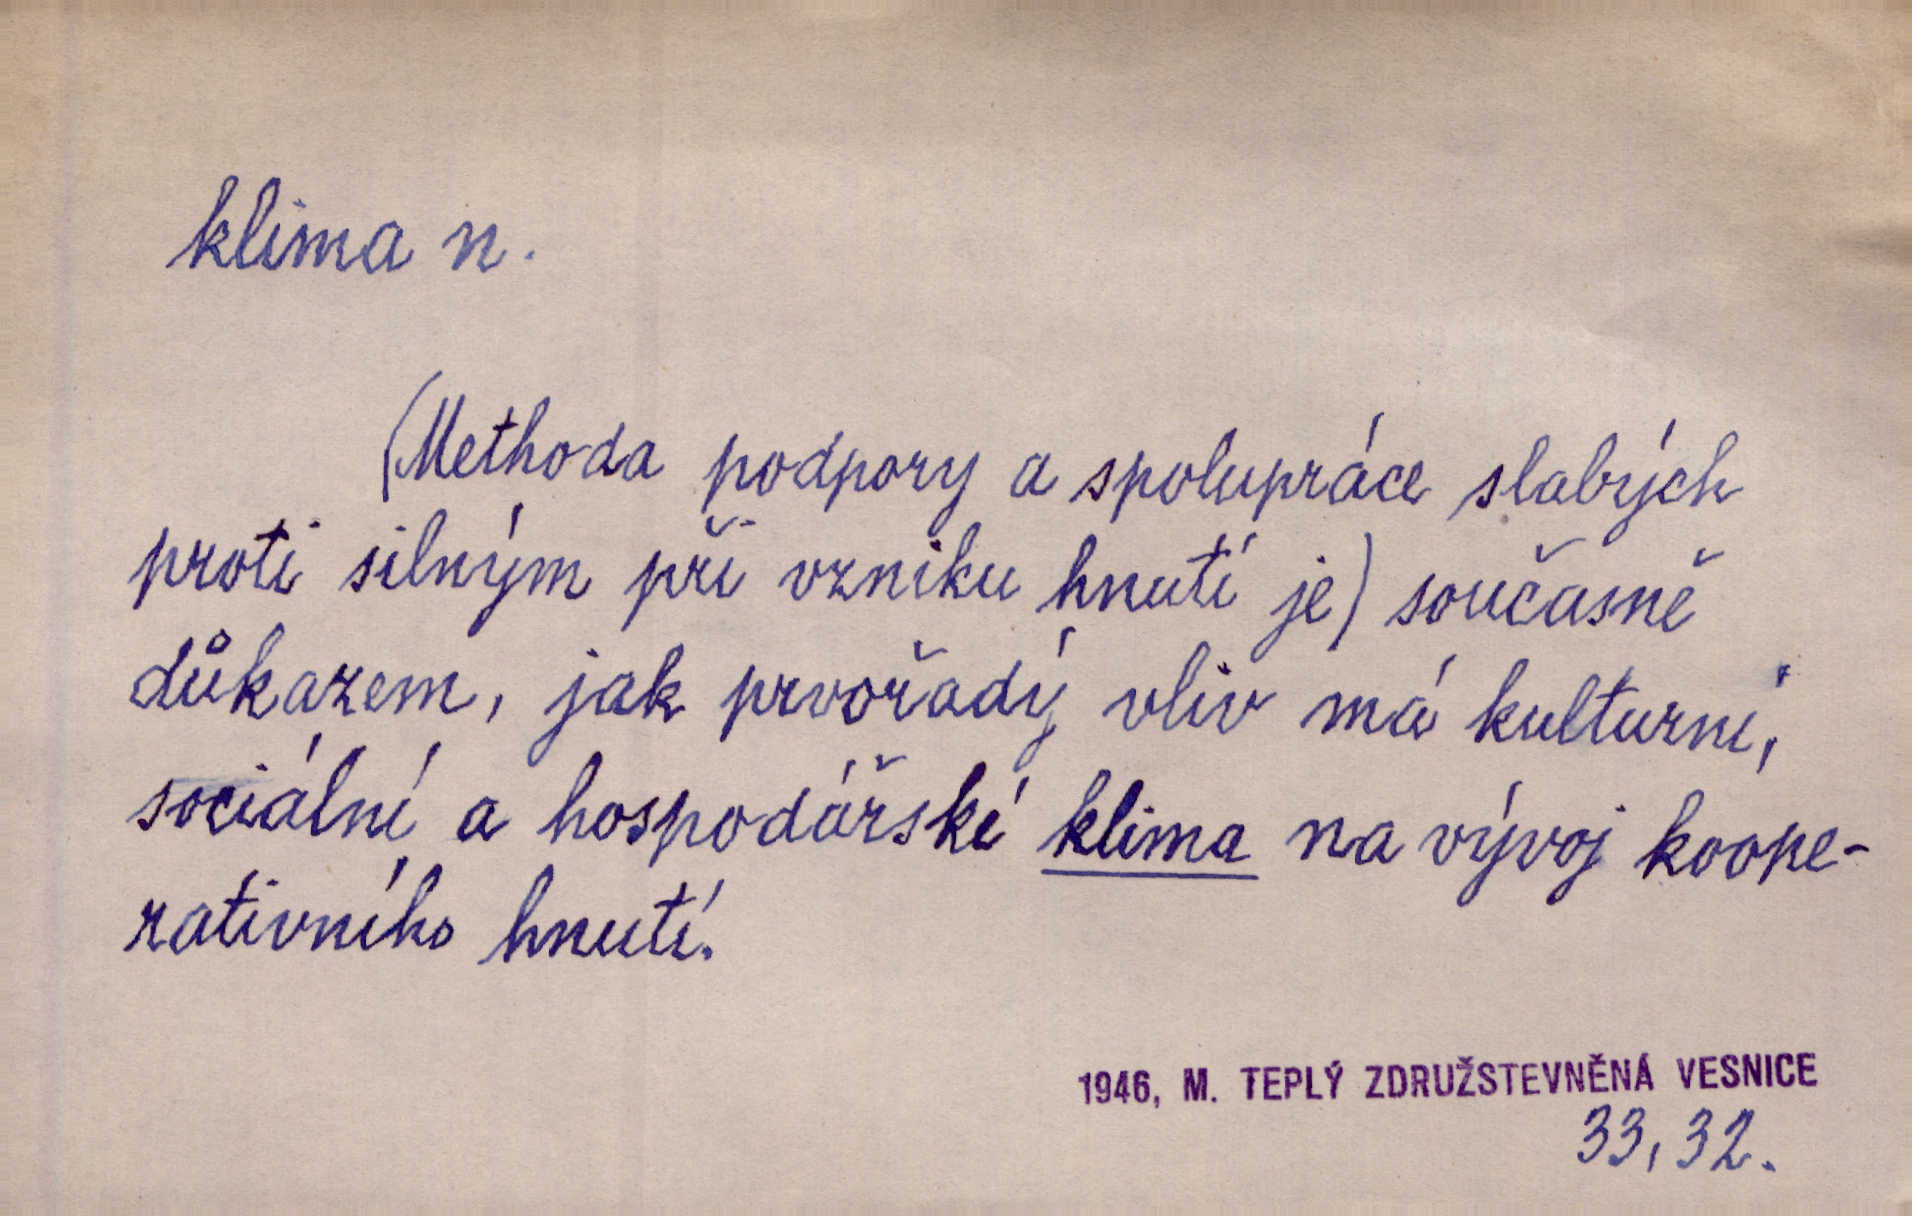 klima n.
(Methoda podpory a spolupráce slabých
proti silným při vzniku hnutí je) současně
důkazem, jak prvořadý vliv má kulturní,
sociální a hospodářské klima na vývoj koope-
rativního hnutí.
1946, M. TEPLÝ ZDRUŽSTEVNĚNÁ VESNICE
33, 32.